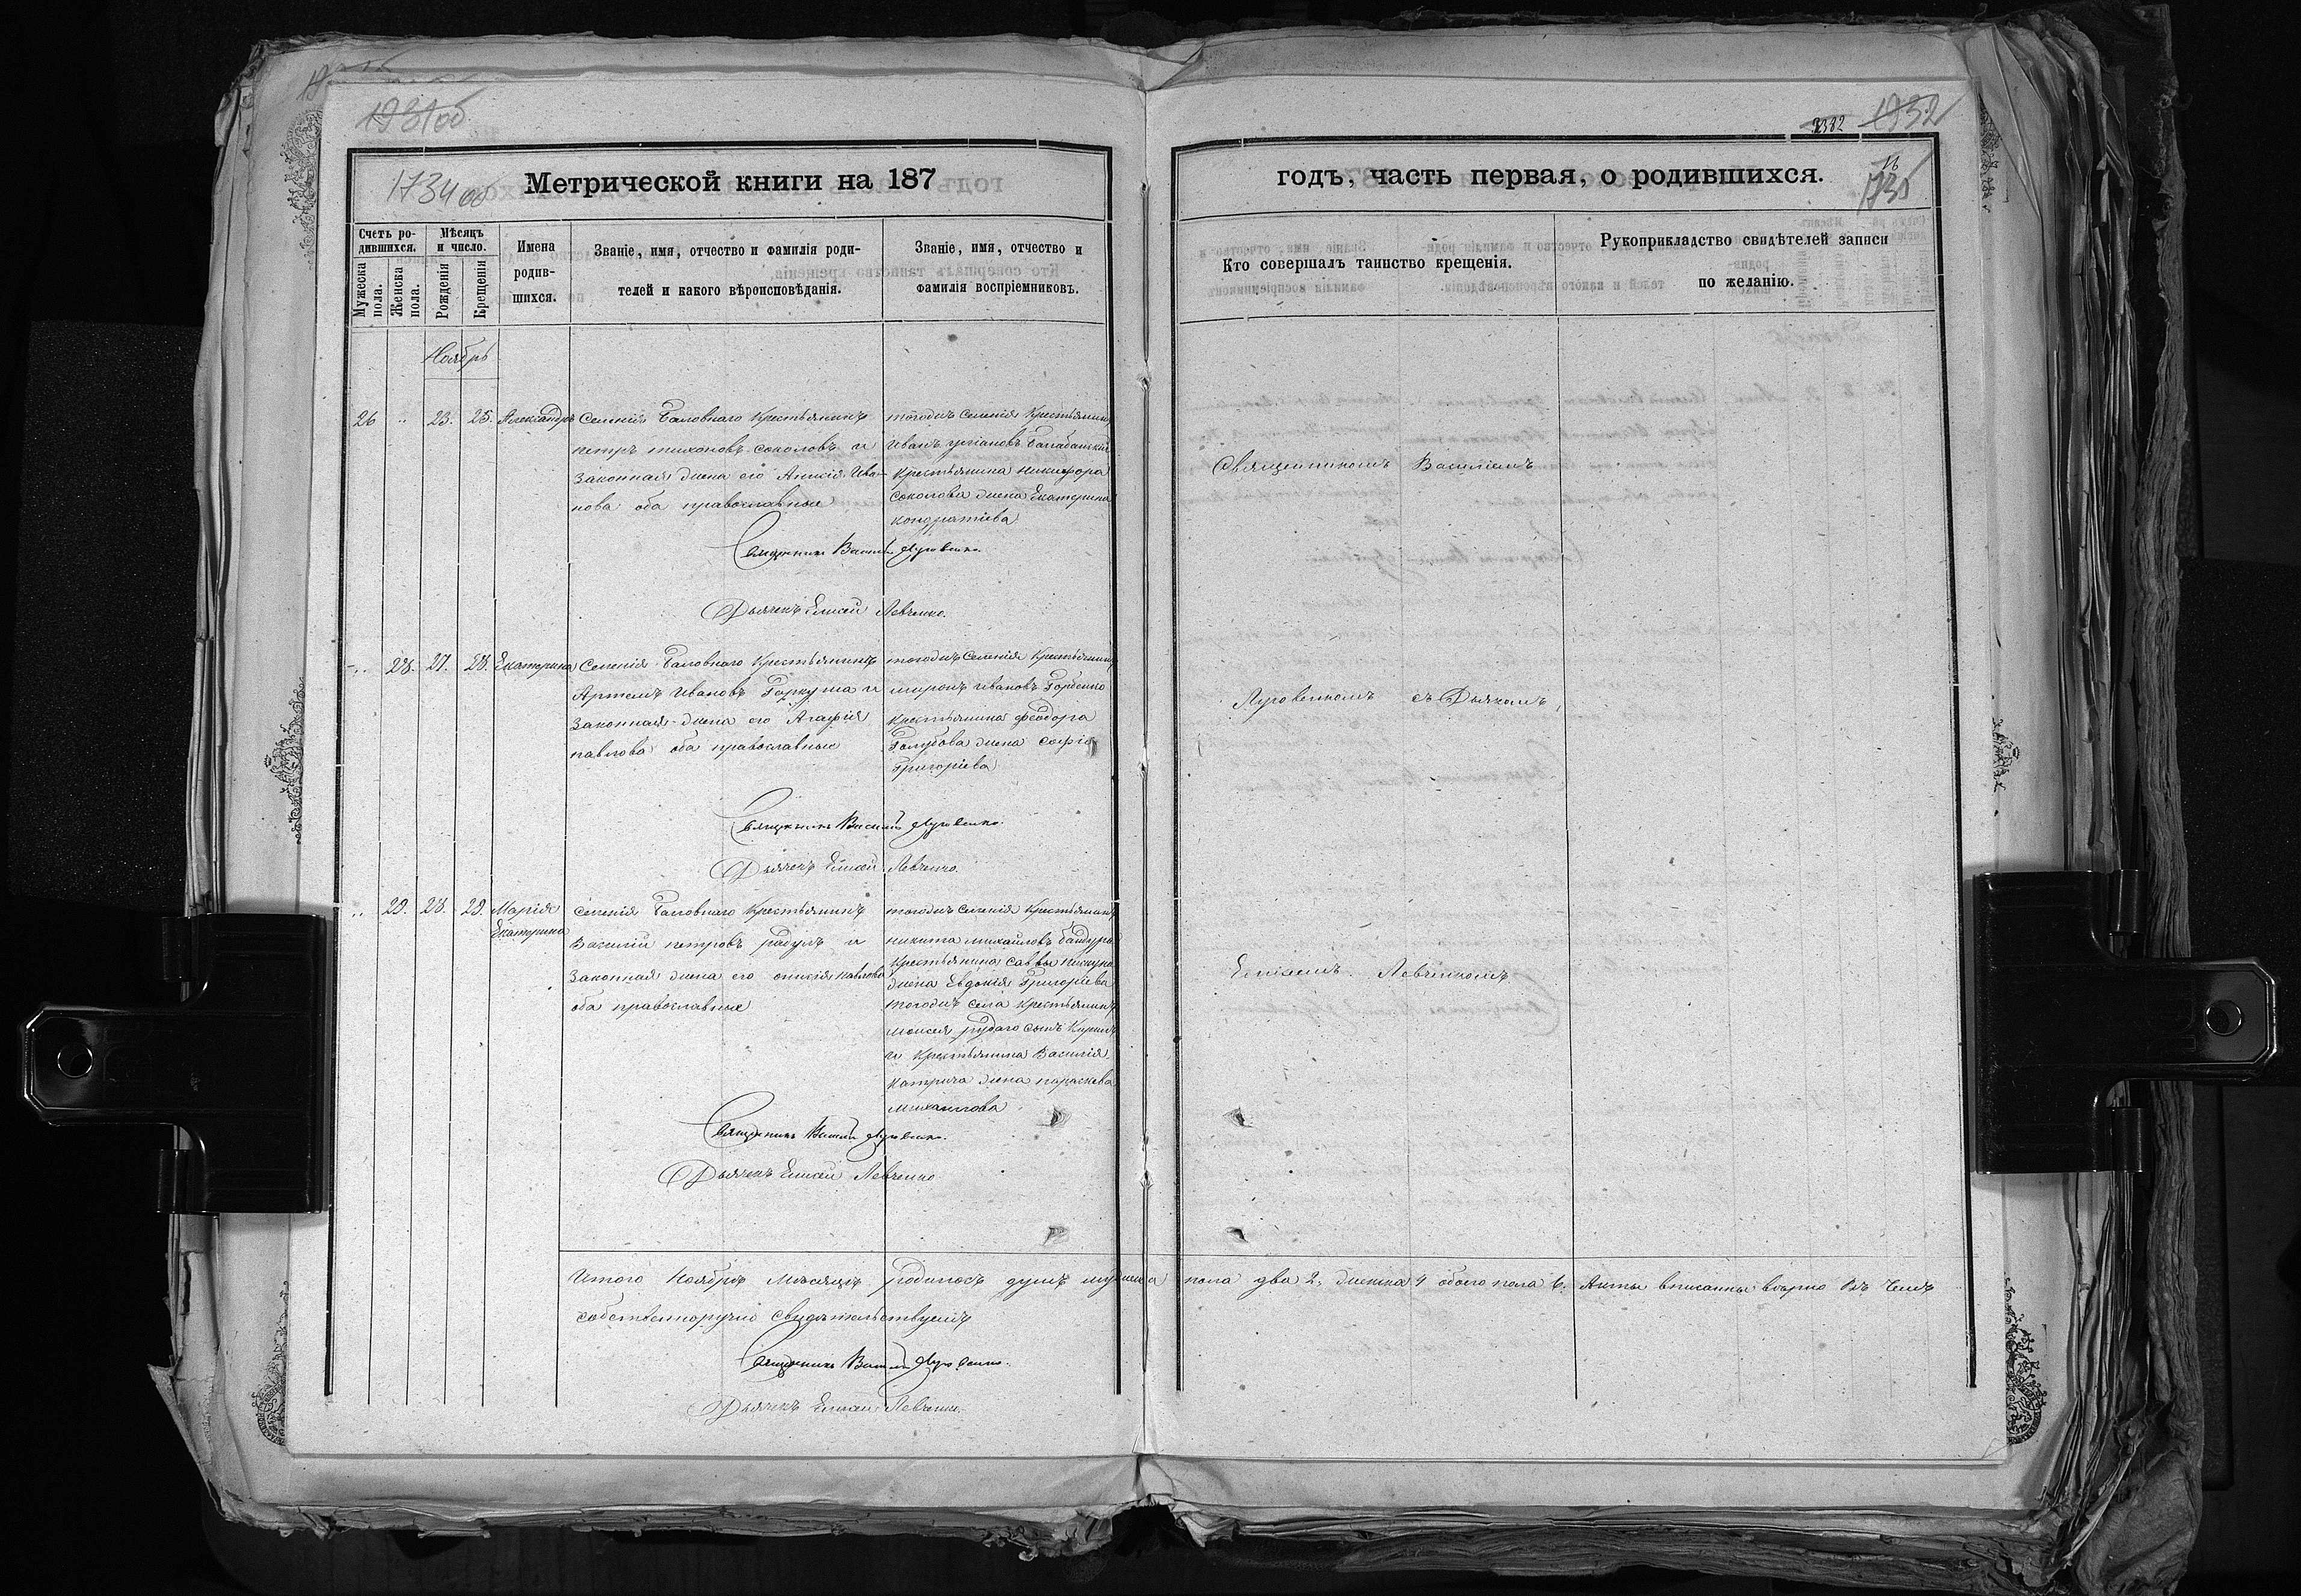 1931об
1932
2382
1734об
1735
Метрической книги на 187
годъ, часть первая, о родившихся.
Счетъ ро-
дившихся.
Мужеска
пола.
Женска
пола.
Мѣсяцъ
и число.
Рожденія
Крещенія
Имена
родив-
шихся.
Званіе, имя, отчество и фамилія роди-
телей и какого вѣроисповѣданія.
Званіе, имя, отчество и
фамилія воспріемниковъ.
Кто совершалъ таинство крещенія.
Рукоприкладство свидѣтелей записи
по желанію.
Ноябрь
26 „ 23. 25. Александръ
Селенія Баловнаго Крестьянинъ
петръ тихоновъ соколовъ и
Законная жена его Анисія Ива-
нова оба православные
тогожъ Селенія Крестьянинъ
Иванъ
крестьянина никифора
соколова жена Екатерина
кондратіева
Священникъ Василій Луговенко.
Дьячекъ Елисей Левченко.
„ 28. 27. 28. Екатерина
Селенія Баловнаго Крестьянинъ
Артемъ Ивановъ Горкуша и
Законная жена его Агафія
павлова оба православные
тогожъ Селенія Крестьянинъ
миронъ Ивановъ Горбенко
крестьянина феодора
Голубова жена софія
Григоріева
Священникъ Василій Луговенко.
Дьячекъ Елисей Левченко.
„ 29. 28. 29. Марія
Екатерина
Селенія Баловнаго Крестьянинъ
Василій петровъ радулъ и
Законная жена его павлова
оба православные
тогожъ Селенія Крестьянинъ
никита михайловъ бандура
крестьянина саввы пискуна
жена Евдокія Григоріева
тогожъ села крестьянинъ
моисея рудаго сынъ Кирилъ
и крестьянина Василія
катрича жена параскева
михаилова
Священникъ Василій Луговенко.
Дьячекъ Елисей Левченко
Священникомъ Василіемъ
Луговенкомъ съ Дьякомъ,
Елисеемъ Левченкомъ
Итого Ноябрь мѣсяцъ родилось душъ мужеска пола два 2, женска 4 обоего пола 6. Акты вписанны вѣрно въ чемъ
собственноручно свидѣтельствуемъ
Священникъ Василій Луговенко.
Дьячекъ Елисей Левченко.